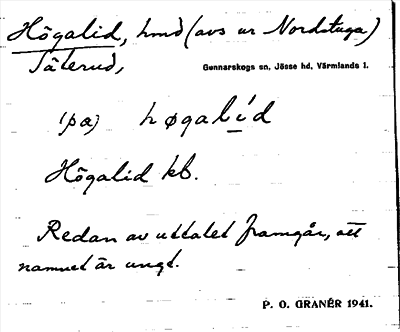 Högalid, hmd (avs ur Nordstuga)
Tälerud,
Gunnarskogs sn, Jösse hd, Värmlands l.
(på) høgalíd
Högalid kb.
Redan av uttalet framgår, att
namnet är ungt.
P. O. GRANÉR 1941.